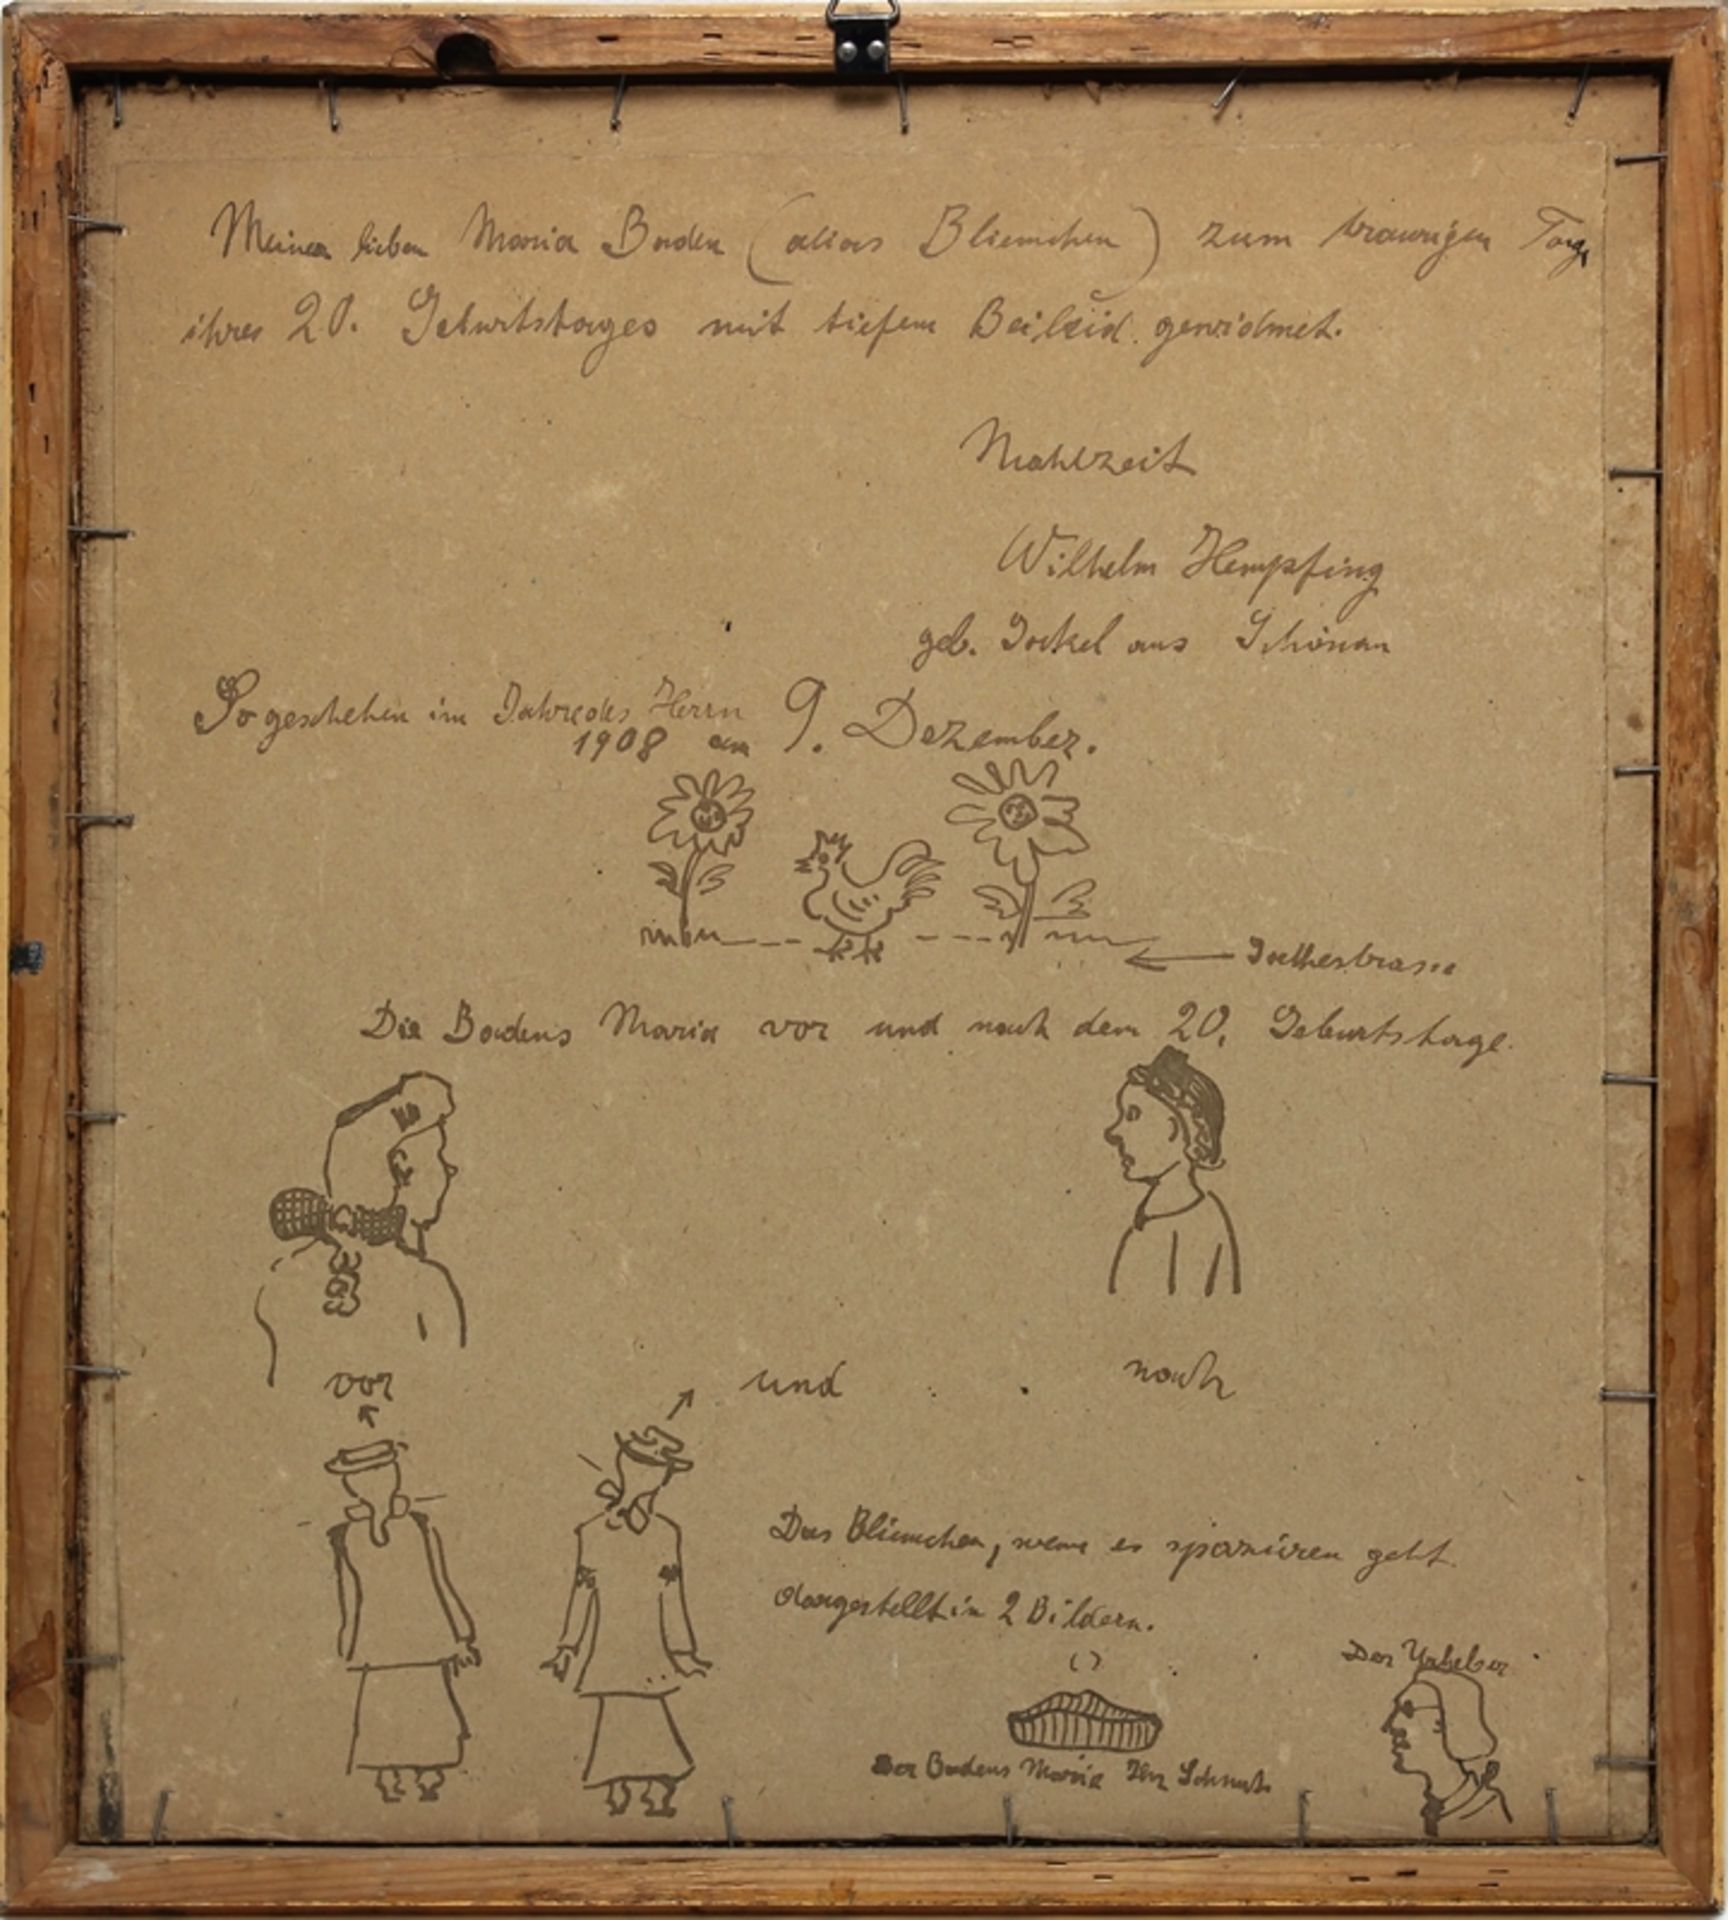 Meiner lieben Maria Baden (alias Bliemchen) zum traurigen Tage
ihres 20. Geburtstages mit tiefem Beileid gewidmet.
Mahlzeit
Wilhelm Hempfing
geb. Gockel aus Schönau
So geschehen im Jahre des Herrn
1908 am 9. Dezember.
Goethestrasse
Die Badens Maria vor und nach dem 20. Geburtstage.
vor und nach
Das Bliemchen, wenn es spazieren geht
dargestellt in 2 Bildern.
Der
Der Badens Maria Ihr Schnut.